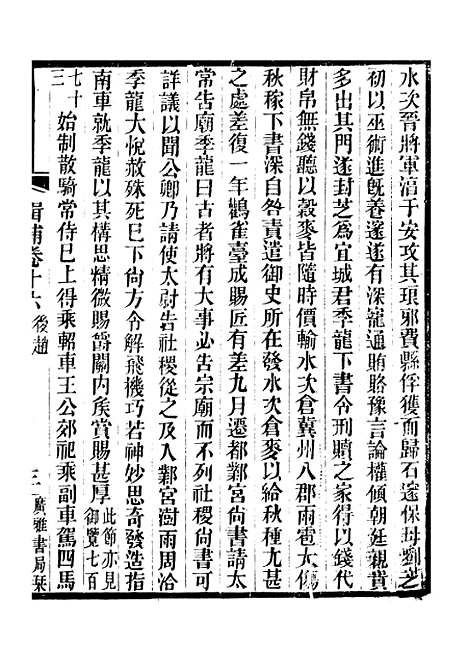 水次晉將軍淳于安攻其琅邪費縣俘獲而歸石邃保母劉芝
初以巫術進旣養邃遂有深寵通賄賂豫言論權傾朝廷親貴
多出其門遂封芝爲宜城君季龍下書令刑贖之家得以錢代
財帛無錢聽以穀麥皆隨時價輸水次倉冀州八郡雨雹大傷
秋稼下書深自咎責遣御史所在發水次倉麥以給秋種尢甚
之處差復一年鸛雀臺成賜匠有差九月遷都鄴宮尙書請太
常告廟季龍曰古者將有大事必告宗廟而不列社稷尙書可
詳議以聞公卿乃請使太尉告社稷從之及入鄴宮澍雨周洽
季龍大悅赦殊死已下尙方令解飛機巧若神妙思奇發造指
南車就季龍以其構思精微賜爵關內矦賞賜甚厚此節亦見御覽七百
七十三始制散騎常侍已上得乘軺車王公郊祀乘副車駕四馬
輯補卷十六 後趙
三 廣雅書局栞